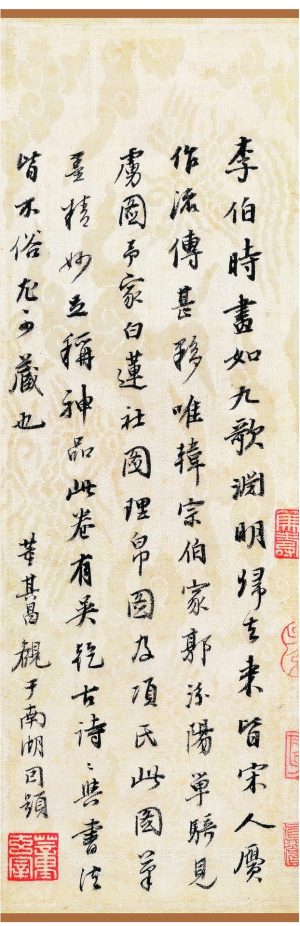 李伯時畫如九歌淵明歸去來皆宋人贗
作流傳甚夥唯韓宗伯家郭汾陽單騎見
虜圖予家白蓮社圖理帛圖及項氏此圖筆
墨精妙互稱神品此卷有吳說古詩〻與書法
皆不俗尤可藏也
董其昌觀于南湖因題